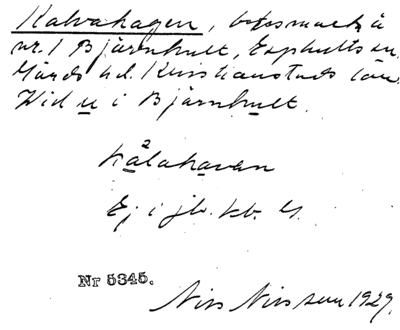 Kalvahagen, betesmark å
nr. 1 Bjärnhult, Esphults sn.
Gärds hd. Kristianstads län.
Vid u i Bjärnhult.
kalahavan
Ej i jb. kb. G.
Nr 5345.
Nils Nilsson 1929.